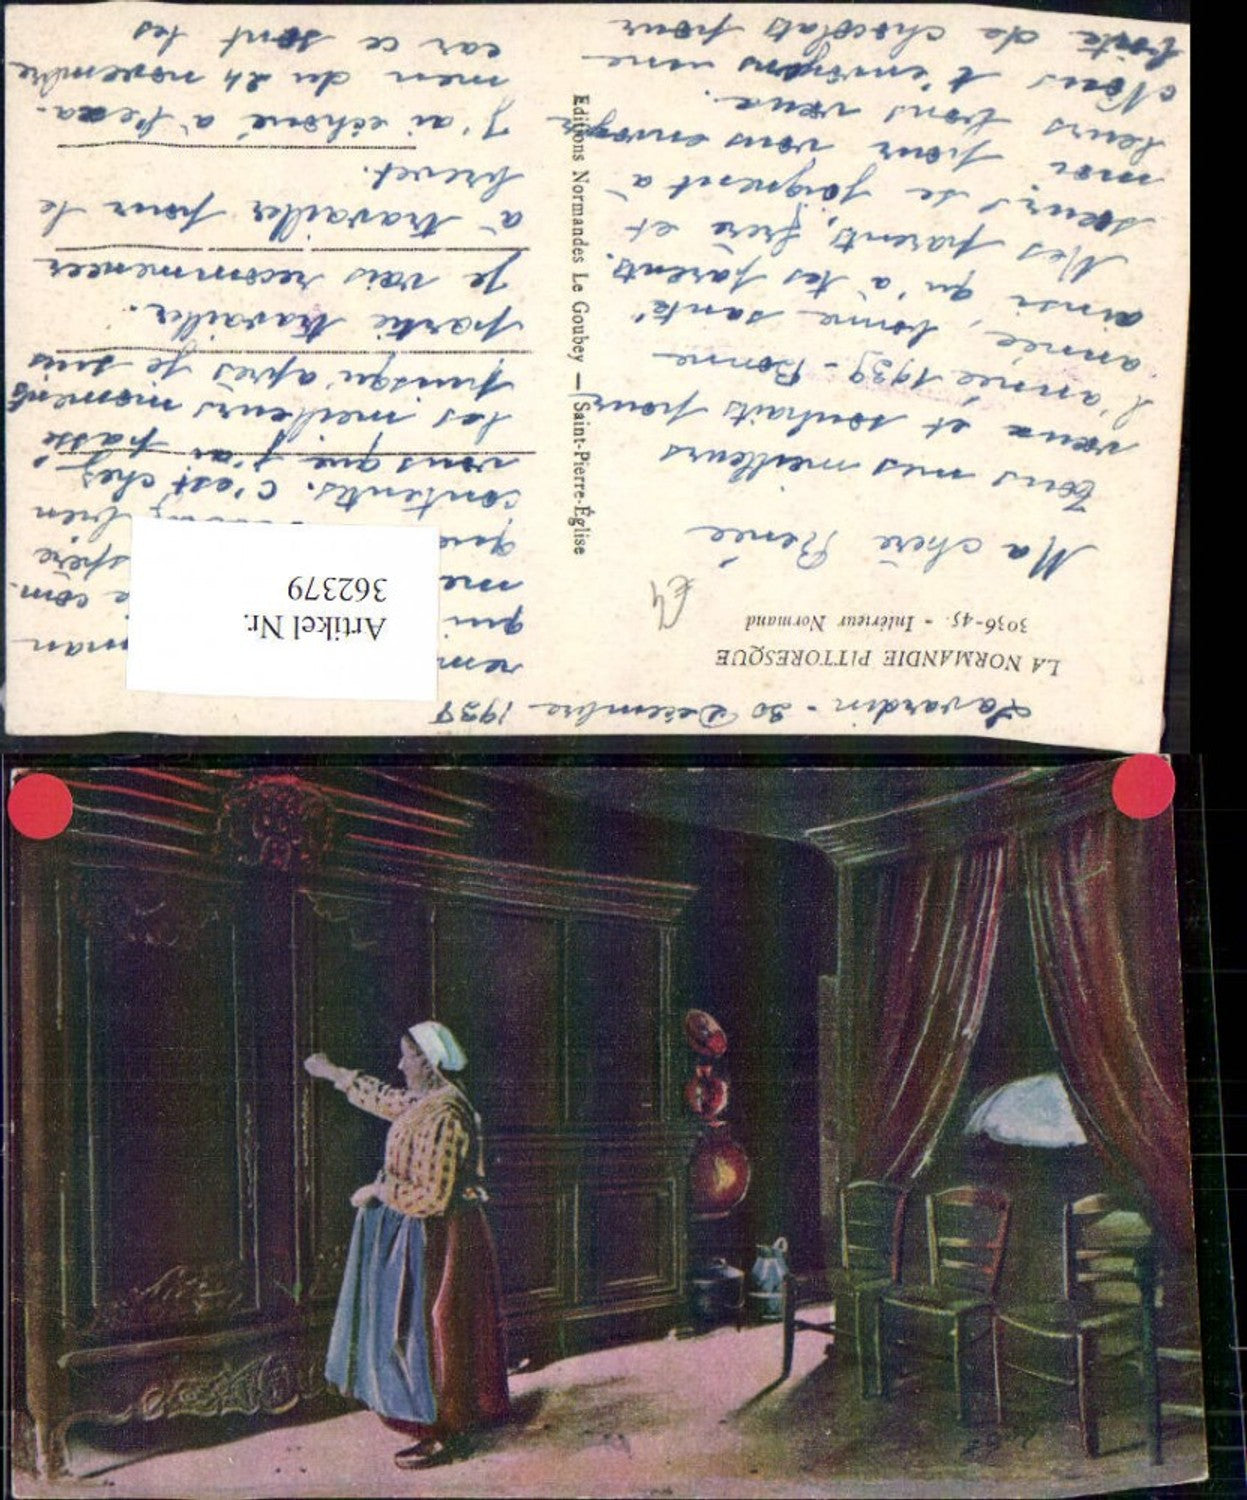 Lavardin - 30 Décembre 1938
LA NORMANDIE PITTORESQUE
3036-45. - Intérieur Normand
Ma chère Renée
Tous mes meilleurs
vœux et souhaits pour
l'année 1939 - Bonne
année, bonne santé
ainsi qu'à tes parents.
Mes parents, frère et
sœurs se joignent à
moi pour vous envoyer
leurs bons vœux.
Nous t'envoyons une
boîte de chocolats pour
rem man
qui
me a com.
que père
bien
contents. C'est chez
vous que j'ai passé
les meilleurs moments
puisqu'après je suis
partie travailler.
Je vais recommencer
à travailler pour le
brevet.
J'ai échoué à l'exa-
men du 24 novembre
car ce sont les
Editions Normandes Le Goubey — Saint-Pierre-Église
Artikel Nr.
362379